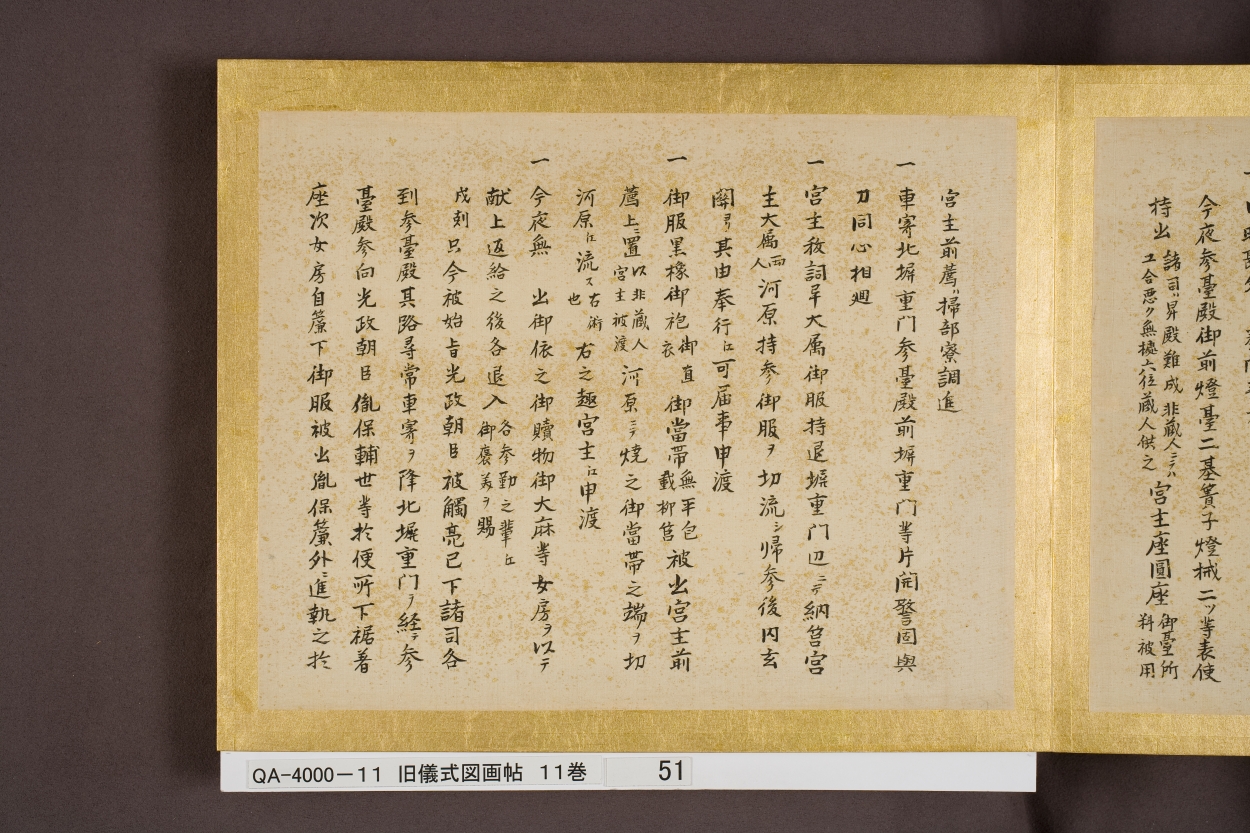 今夜参臺殿御前燈臺二基簀子燈械二ツ等表使
持出 諸司ハ昇殿難成非蔵人ニテハ
ユ合悪ク無據六位蔵人供之 宮主座圓座 御臺所
料被用
宮主前薦ハ掃部寮調進
一 車寄北塀重門参臺殿前塀重門等片開警固與
刀同心相廻
一 宮主秡詞畢大属御服持退塀重門辺ニテ納筥宮
主大属両
人河原持参御服ヲ切流シ帰参後内玄
関ヨリ其由奉行江可届事申渡
一 御服黒橡御袍御直
衣 御當帯無平包
載柳筥 被出宮主前
薦上ニ置以非蔵人
宮主被渡 河原ニテ焼之御當帯之端ヲ切
河原江流ス右術
也 右之趣宮主江申渡
一 今夜無 出御依之御贖物御大麻等女房ヲ以テ
献上返給之後各退入 各参勤之輩江
御褒美ヲ賜
戌刻只今被始旨光政朝臣被觸亮已下諸司各
到参臺殿其路尋常車寄ヲ降北塀重門ヲ経テ参
臺殿参向光政朝臣胤保輔世等於便所下裾着
座次女房自簾下御服被出胤保簾外ニ進執之於
QA-4000-11 旧儀式図画帖 11巻 51